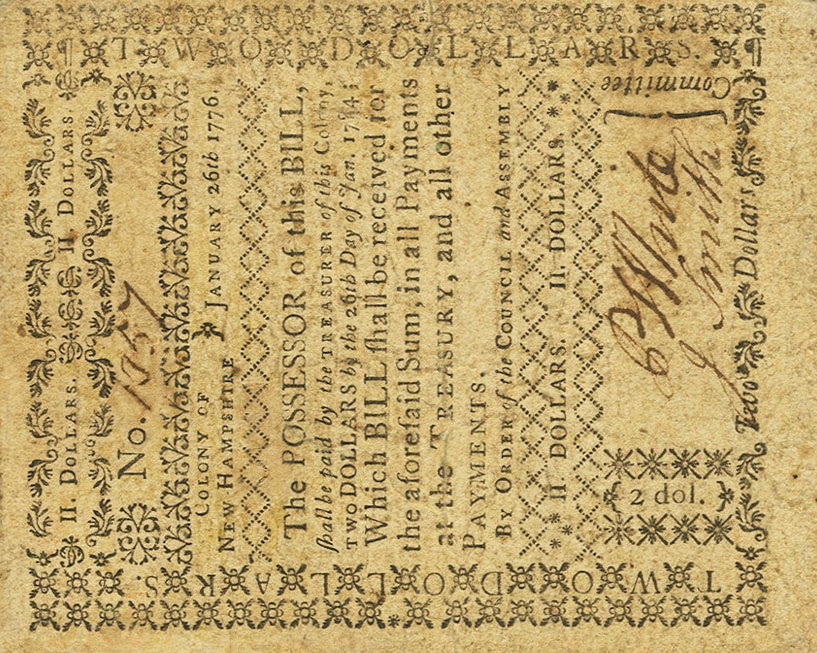 TWO DOLLARS.
II. DOLLARS. II. DOLLARS.
No. 1857
COLONY OF
NEW HAMPSHIRE
JANUARY 26th 1776.
The POSSESSOR of this BILL,
ſhall be paid by the TREASURER of this Colony,
TWO DOLLARS by the 26th Day of Jan. 1784;
Which BILL ſhall be received for
the aforeſaid Sum, in all Payments
at the TREASURY, and all other
PAYMENTS.
By ORDER of the COUNCIL and ASSEMBLY
II DOLLARS. II DOLLARS.
2 dol.
P White
J Smith
} Committee
Two Dollars
TWO DOLLARS.